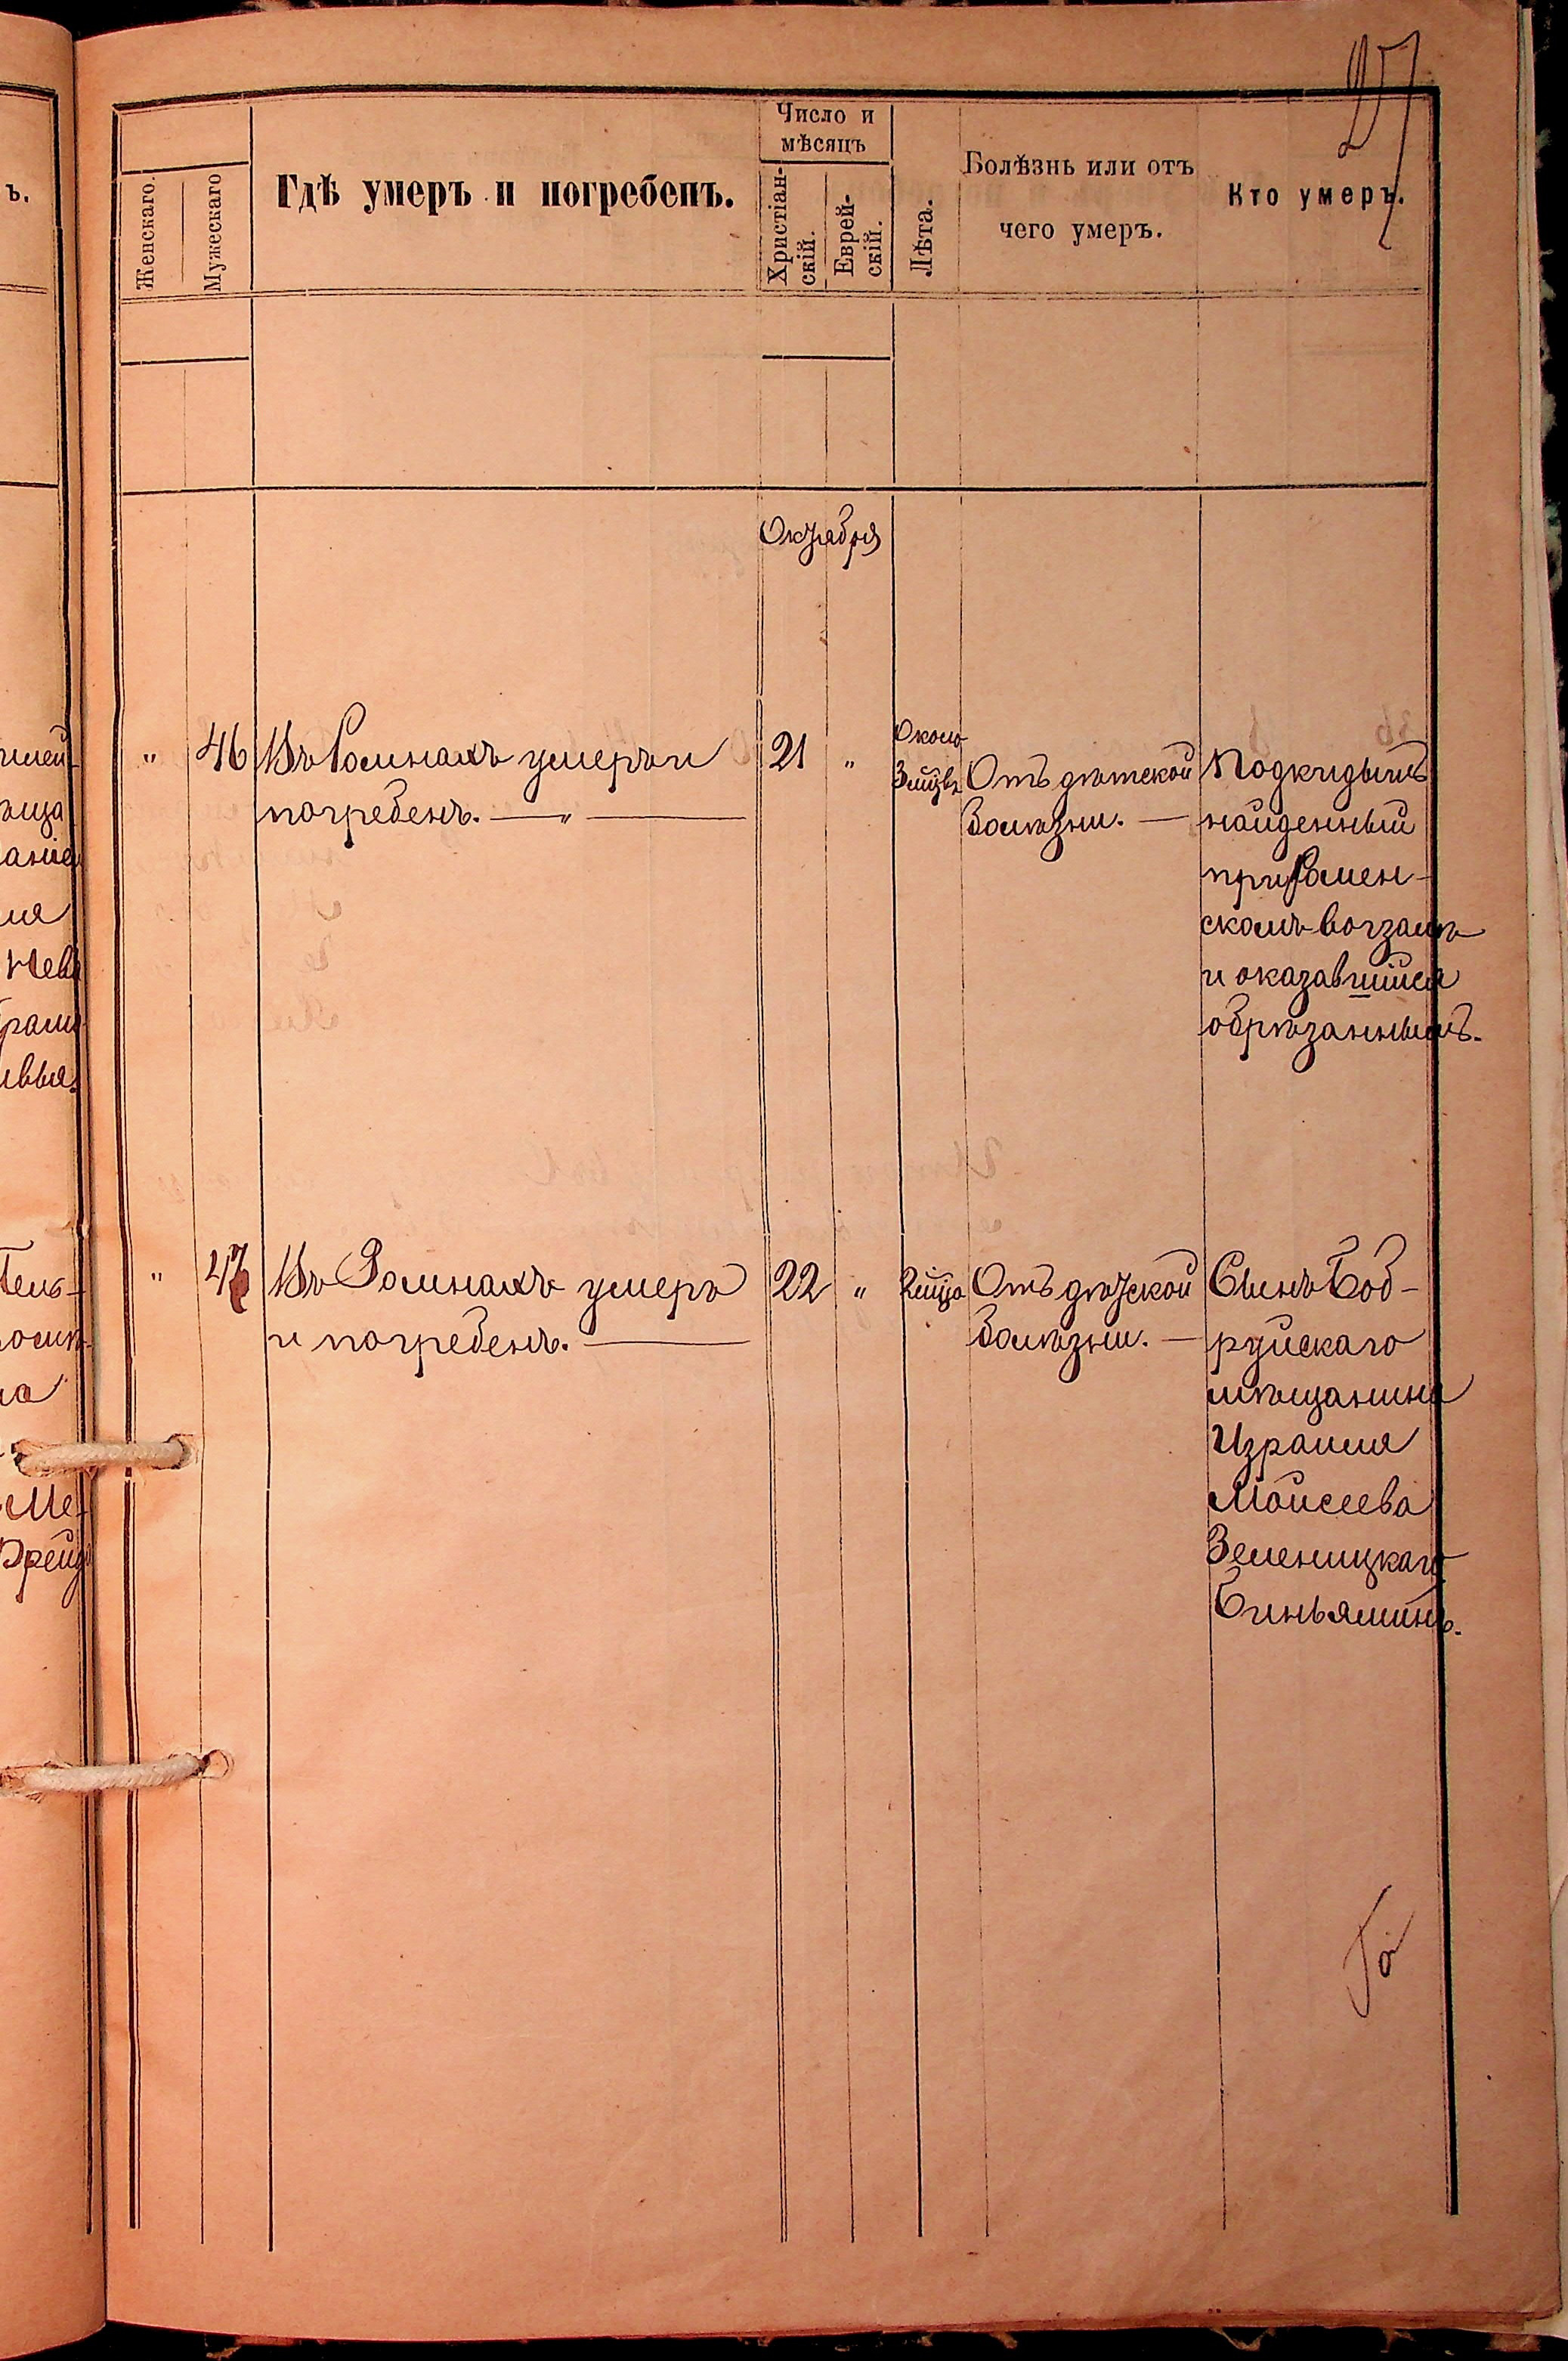 27
Женскаго.
Мужескаго
Гдѣ умеръ и погребенъ.
Число и
мѣсяцъ
Христіан-
скій.
Еврей-
скій.
Лѣта.
Болѣзнь или отъ
чего умеръ.
Кто умеръ.
Октября
"
46
Въ Ромнахъ умеръ и
погребенъ. — " —
21
"
Около
3 мцвъ
Отъ дѣтской
болѣзни. —
Подкидышъ
найденный
при Ромен-
скомъ вокзалѣ
и оказавшійся
обрѣзаннымъ.
"
47
Въ Ромнахъ умеръ
и погребенъ. —
22
"
2 мцв
Отъ дѣтской
болѣзни. —
Сынъ Боб-
руйскаго
мѣщанина
Израиля
Мойсеева
Зеленицкаго
Биньяминъ.